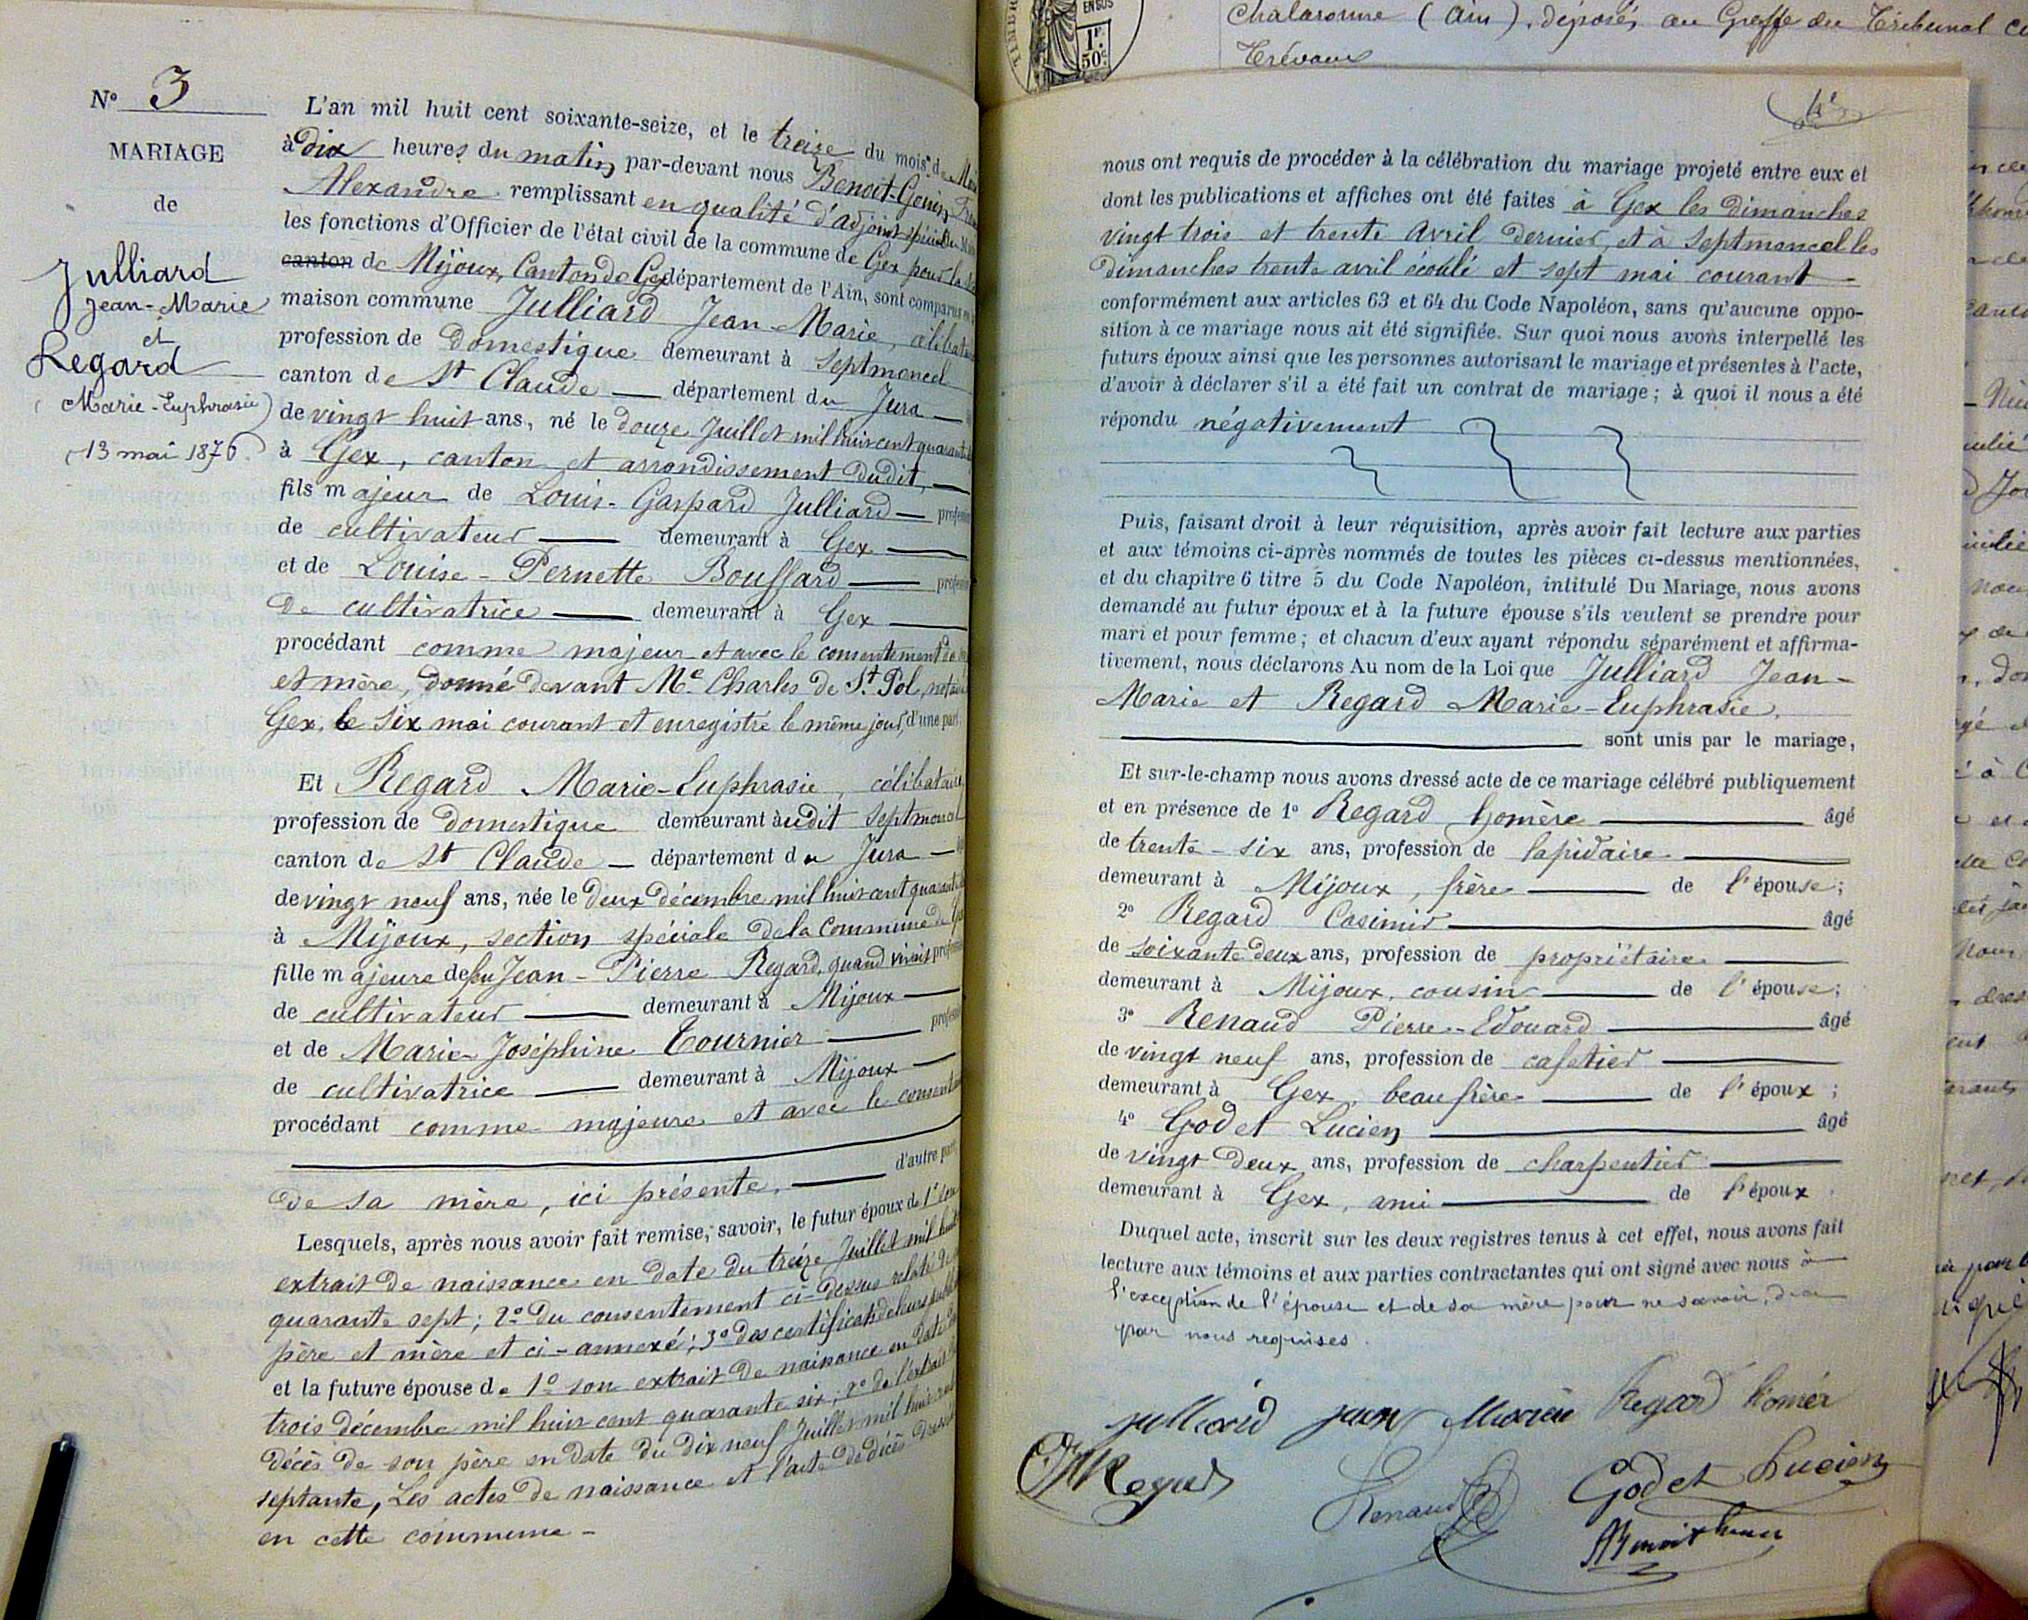 N° 3
MARIAGE
de
Julliard
Jean-Marie
et
Regard
Marie-Euphrasie
13 mai 1876.
L'an mil huit cent soixante-seize, et le treize du mois de
à dix heures du matin par-devant nous Benoit-Gonin
Alexandre remplissant en qualité d'adjoint spécial
les fonctions d'Officier de l'état civil de la commune de Gex pour la
canton de Mijoux, Canton de Gex département de l'Ain, sont comparus
maison commune Julliard Jean-Marie, célibataire
profession de Domestique demeurant à Septmoncel
canton de St Claude — département du Jura —
de vingt huit ans, né le douze Juillet mil huit cent quarante
à Gex, canton et arrondissement dudit, —
fils majeur de Louis-Gaspard Julliard — profession
de cultivateur — demeurant à Gex —
et de Louise-Pernette Bouffard — profession
de cultivatrice — demeurant à Gex —
procédant comme majeur et avec le consentement de
et mère, donné devant Me Charles de St Pol, notaire
Gex, le six mai courant et enregistré le même jour, d'une part.
Et Regard Marie-Euphrasie, célibataire
profession de domestique demeurant àudit Septmoncel
canton de St Claude — département du Jura —
de vingt neuf ans, née le Deux décembre mil huit cent quarante
à Mijoux, section spéciale de la Commune de Gex
fille majeure de feu Jean-Pierre Regard, quand vivait profession
de cultivateur — demeurant à Mijoux —
et de Marie-Joséphine Tournier — profession
de cultivatrice — demeurant à Mijoux —
procédant comme majeure et avec le consentement
— d'autre part
de sa mère, ici présente, —
Lesquels, après nous avoir fait remise, savoir, le futur époux de 1° son
extrait de naissance en date du treize Juillet mil huit
quarante sept; 2° du consentement ci-dessus relaté de
père et mère et ci-annexé; 3° des certificats de leurs
et la future épouse de 1° son extrait de naissance en date du
trois décembre mil huit cent quarante six; 2° de l'extrait
décès de son père en date du dix neuf Juillet mil huit cent
septante, Les actes de naissance et l'acte de décès dressés
en cette commune —
Chalaronne (Ain), déposés au Greffe du Tribunal
Trévoux
EN SUS
1F.
50c.
nous ont requis de procéder à la célébration du mariage projeté entre eux et
dont les publications et affiches ont été faites à Gex les dimanches
vingt trois et trente Avril dernier, et à Septmoncel les
dimanches trente avril écoulé et sept mai courant —
conformément aux articles 63 et 64 du Code Napoléon, sans qu'aucune oppo-
sition à ce mariage nous ait été signifiée. Sur quoi nous avons interpellé les
futurs époux ainsi que les personnes autorisant le mariage et présentes à l'acte,
d'avoir à déclarer s'il a été fait un contrat de mariage; à quoi il nous a été
répondu négativement
Puis, faisant droit à leur réquisition, après avoir fait lecture aux parties
et aux témoins ci-après nommés de toutes les pièces ci-dessus mentionnées,
et du chapitre 6 titre 5 du Code Napoléon, intitulé Du Mariage, nous avons
demandé au futur époux et à la future épouse s'ils veulent se prendre pour
mari et pour femme; et chacun d'eux ayant répondu séparément et affirma-
tivement, nous déclarons Au nom de la Loi que Julliard Jean-
Marie et Regard Marie-Euphrasie.
— sont unis par le mariage,
Et sur-le-champ nous avons dressé acte de ce mariage célébré publiquement
et en présence de 1° Regard Homère — âgé
de trente-six ans, profession de lapidaire —
demeurant à Mijoux, frère — de l'épouse;
2° Regard Casimir — âgé
de soixante deux ans, profession de propriétaire —
demeurant à Mijoux, cousin — de l'épouse;
3° Renaud Pierre-Edouard — âgé
de vingt neuf ans, profession de cafetier —
demeurant à Gex, beau frère — de l'époux;
4° Godet Lucien — âgé
de vingt deux ans, profession de charpentier —
demeurant à Gex, ami — de l'époux.
Duquel acte, inscrit sur les deux registres tenus à cet effet, nous avons fait
lecture aux témoins et aux parties contractantes qui ont signé avec nous à
l'exception de l'épouse et de sa mère pour ne savoir, de ce
par nous requises.
julliard jean Marie Regard homér
Regard
Renaud
Godet Lucien